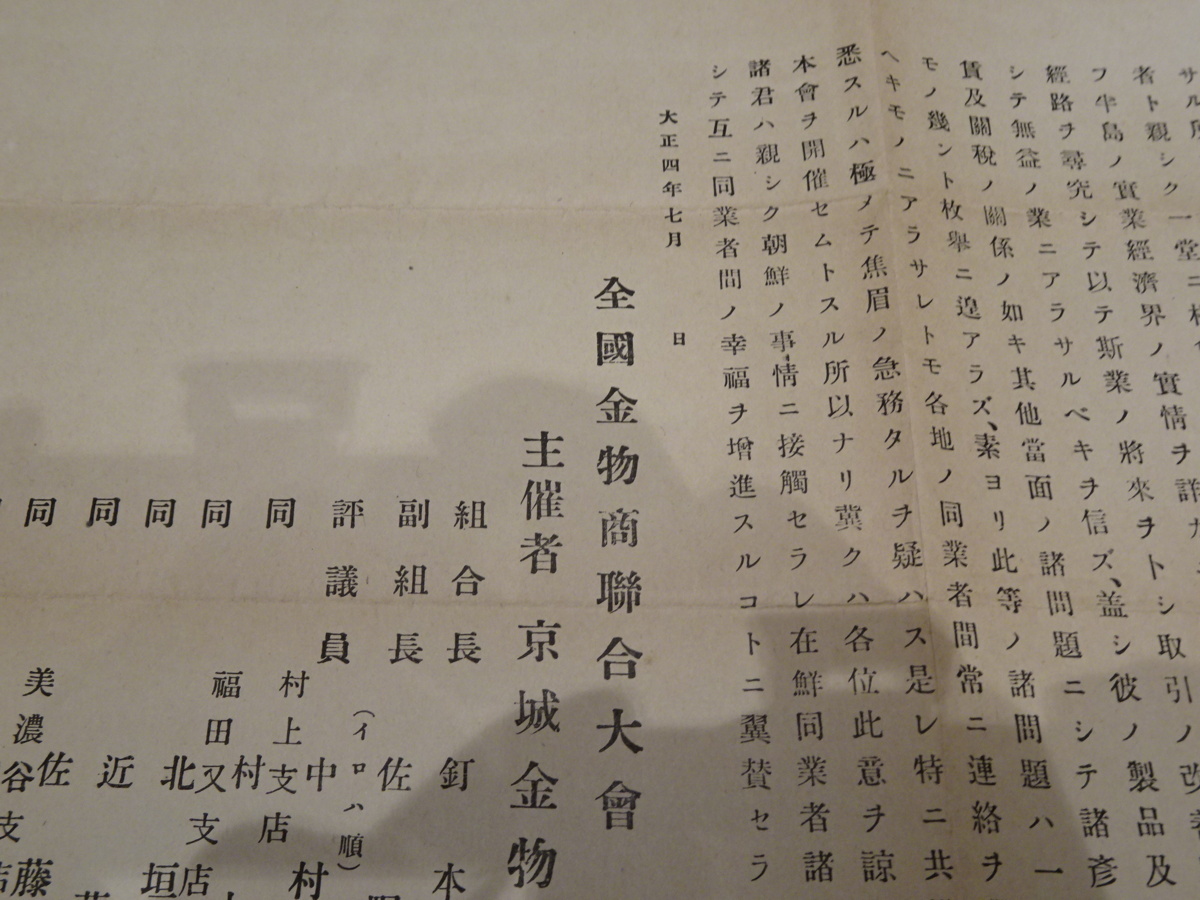 者ト親シク一堂ニ
フ半島ノ實業經濟界ノ實情ヲ詳カ
經路ヲ尋究シテ以テ斯業ノ將來ヲトシ取引ノ改
シテ無益ノ業ニアラサルベキヲ信ズ、蓋シ彼ノ製品及
賃及關稅ノ關係ノ如キ其他當面ノ諸問題ニシテ諸彥
モノ幾ント枚擧ニ遑アラズ、素ヨリ此等ノ諸問題ハ一
ヘキモノニアラサレトモ各地ノ同業者間常ニ連絡ヲ
悉スルハ極メテ焦眉ノ急務タルヲ疑ハス是レ特ニ共
本會ヲ開催セムトスル所以ナリ冀クハ各位此意ヲ諒
諸君ハ親シク朝鮮ノ事情ニ接觸セラレ在鮮同業者諸
シテ互ニ同業者間ノ幸福ヲ增進スルコトニ翼賛セラ
大正四年七月 日
全國金物商聯合大會
主催者 京城金物
組合長 釘本
副組長 佐
評議員 (イロハ順) 中村
同 村上支店 村
同 福田又支店 北
同 垣
同 近
同 美濃谷支店 佐藤